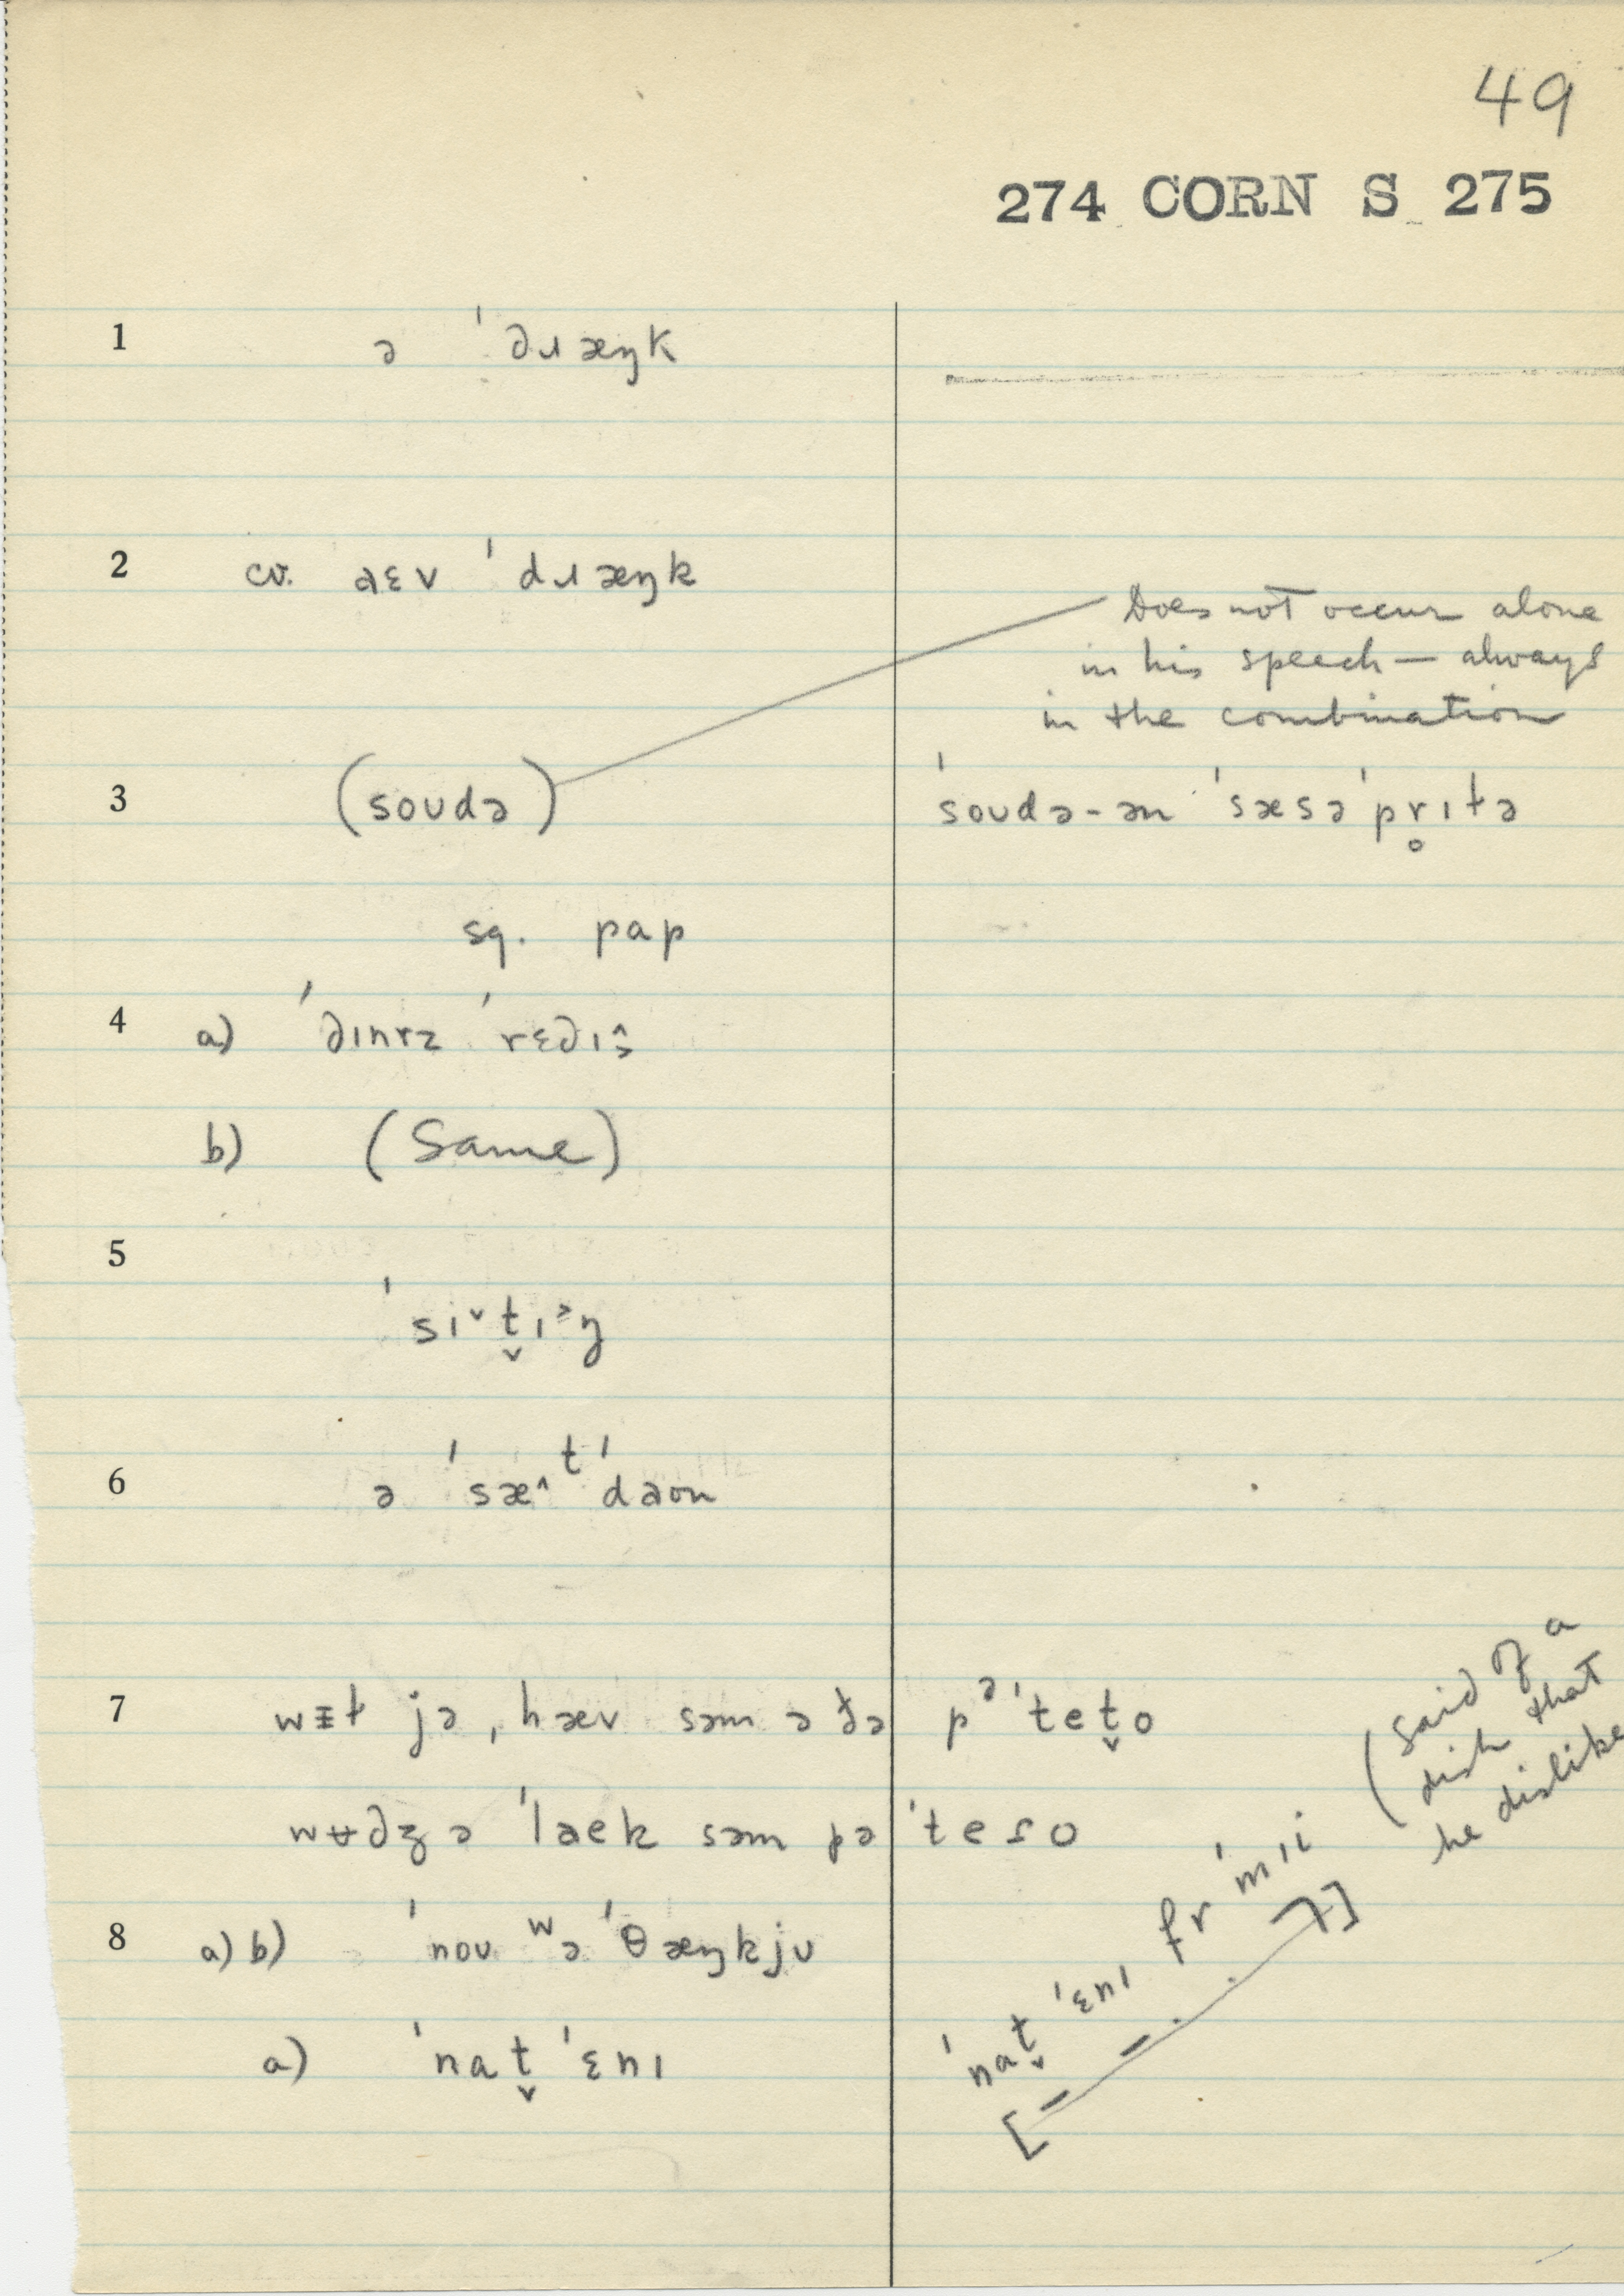 49
274 CORN S 275
1 ə ˈdɹæŋk
2 cv. aɛv ˈdɹæŋk
Does not occur alone
in his speech — always
in the combination
3 (soudə) ˈsoudə-ən ˈsæsəˈpr̥ɪłə
sq. pap
4 a) ˈdɪnrz ˈrɛdɪš
b) (Same)
5
ˈsɪ˅t̬ɪ˃ŋ
6 ə ˈsæ^ᵗˈdaʊn
7 wɪt jə, hæv səm ə ðə pᵊˈtet̬o
wʉdʒə ˈlaek səm pəˈteɾo
(said of a
dish that
he dislike
8 a) b) ˈnoʊ ʷəˈθæŋkju
a) ˈnat̬ ˈɛnɪ
ˈnat̬ ˈɛnɪ frˈmɪi